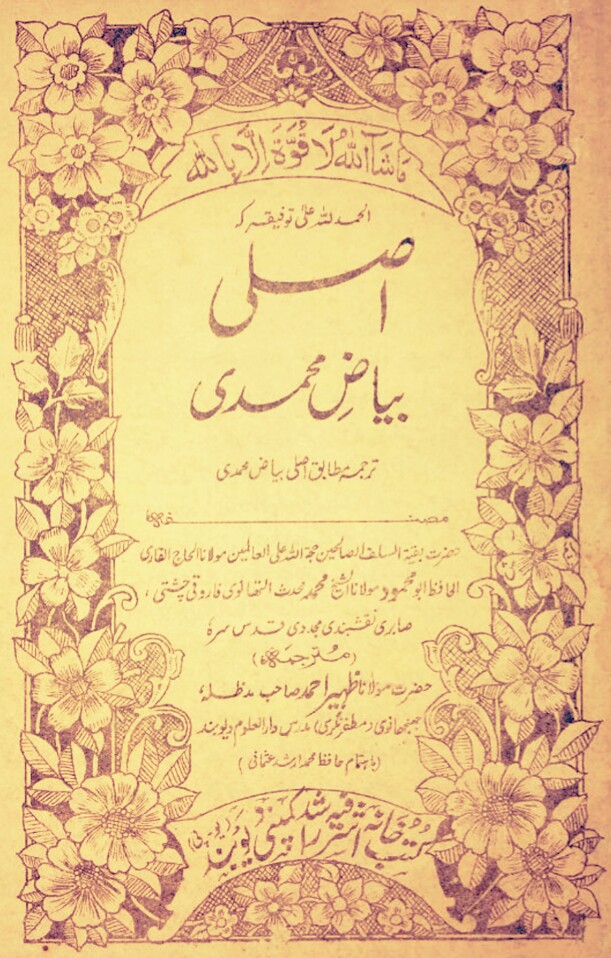 ما شاء اللہ لا قوۃ الا باللہ
الحمد للہ علیٰ توفیقہ کہ
اصلی
بیاضِ محمدی
ترجمہ مطابق اصلی بیاض محمدی
مصنفہ
حضرت بقیۃ السلف الصالحین حجۃ اللہ علی العالمین مولانا الحاج القاری
الحافظ ابو محمود مولانا الشیخ محمد محدث التھانوی فاروقی چشتی،
صابری نقشبندی مجددی قدس سرہ
(مترجمہ)
حضرت مولانا ظہیر احمد صاحب مدظلہٗ
جھنجھانوی (مظفرنگری) مدرس دارالعلوم دیوبند
(باہتمام حافظ محمد ارشد عثمانی)
کتب خانہ اشرفیہ راشد کمپنی دیوبند (یو،پی)